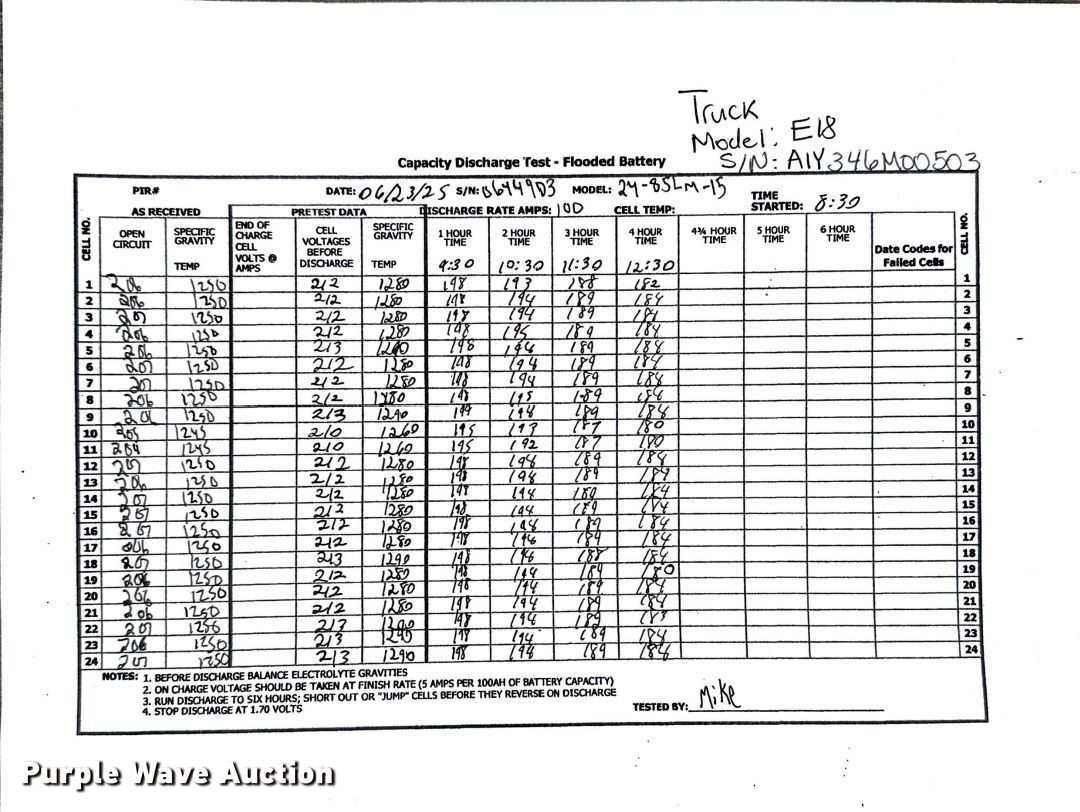 Truck
Model: E18
S/N: A1Y346M00503
Capacity Discharge Test - Flooded Battery
PIR# DATE: 06/23/25 S/N: MODEL: 24-85LM-15 TIME STARTED: 8:30
AS RECEIVED PRETEST DATA DISCHARGE RATE AMPS: 100 CELL TEMP:
CELL NO. OPEN CIRCUIT SPECIFIC GRAVITY TEMP END OF CHARGE CELL VOLTS @ AMPS CELL VOLTAGES BEFORE DISCHARGE SPECIFIC GRAVITY TEMP 1 HOUR TIME 2 HOUR TIME 3 HOUR TIME 4 HOUR TIME 4¾ HOUR TIME 5 HOUR TIME 6 HOUR TIME Date Codes for Failed Cells CELL NO.
9:30 10:30 11:30 12:30
1 206 1250 212 1280 198 193 188 182 1
2 206 1250 212 1280 198 194 189 184 2
3 207 1250 212 1280 198 194 189 184 3
4 206 1250 212 1280 198 195 189 184 4
5 206 1250 213 198 194 189 184 5
6 207 1250 212 1280 198 194 189 184 6
7 207 1250 212 1280 198 194 189 184 7
8 206 1250 212 198 195 189 184 8
9 1250 213 1290 199 194 189 184 9
10 205 1245 210 1260 195 193 187 180 10
11 204 1245 210 1260 195 192 187 180 11
12 207 1250 212 1280 198 194 189 184 12
13 206 1250 212 1280 198 194 189 184 13
14 207 1250 212 1280 198 194 184 14
15 207 1250 212 1280 198 194 189 184 15
16 207 1250 212 1280 198 194 189 184 16
17 1250 212 1280 198 194 189 184 17
18 207 1250 213 1290 198 194 188 184 18
19 206 1250 212 1280 198 194 189 180 19
20 206 1250 212 1280 198 194 189 184 20
21 206 1250 212 1280 198 194 189 184 21
22 207 1250 213 1290 198 194 189 183 22
23 206 1250 213 1290 198 194 189 184 23
24 207 1250 213 1290 198 194 189 184 24
NOTES: 1. BEFORE DISCHARGE BALANCE ELECTROLYTE GRAVITIES
2. ON CHARGE VOLTAGE SHOULD BE TAKEN AT FINISH RATE (5 AMPS PER 100AH OF BATTERY CAPACITY)
3. RUN DISCHARGE TO SIX HOURS; SHORT OUT OR "JUMP" CELLS BEFORE THEY REVERSE ON DISCHARGE
4. STOP DISCHARGE AT 1.70 VOLTS
TESTED BY: Mike
Purple Wave Auction